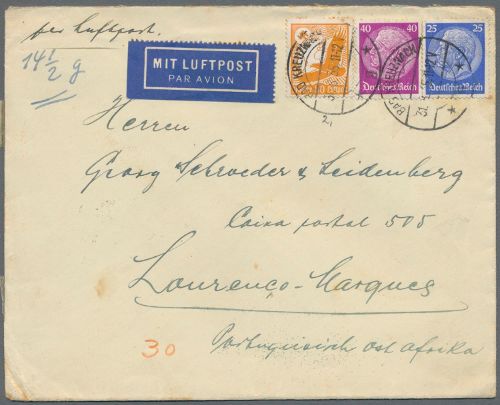 per Luftpost.
14 1/2 g
MIT LUFTPOST
PAR AVION
40 40
Deutsches Reich
25 25
Deutsches Reich
BAD KREUZNACH
Herren
Georg Schroeder & Seidenberg
Caixa postal 505
Lourenço-Marques
30
Portugiesisch Ost Afrika